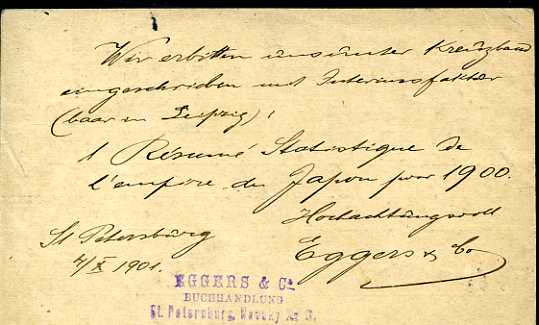 Wir erbitten uns unter Kreuzband
eingeschrieben mit Interimsfaktur
(baar in Leipzig):
1 Résumé Statistique de
l'empire du Japon pour 1900.
Hochachtungsvoll
Eggers & Co
St Petersburg
4/X 1901.
EGGERS & Co.
BUCHHANDLUNG
St. Petersburg, Newsky